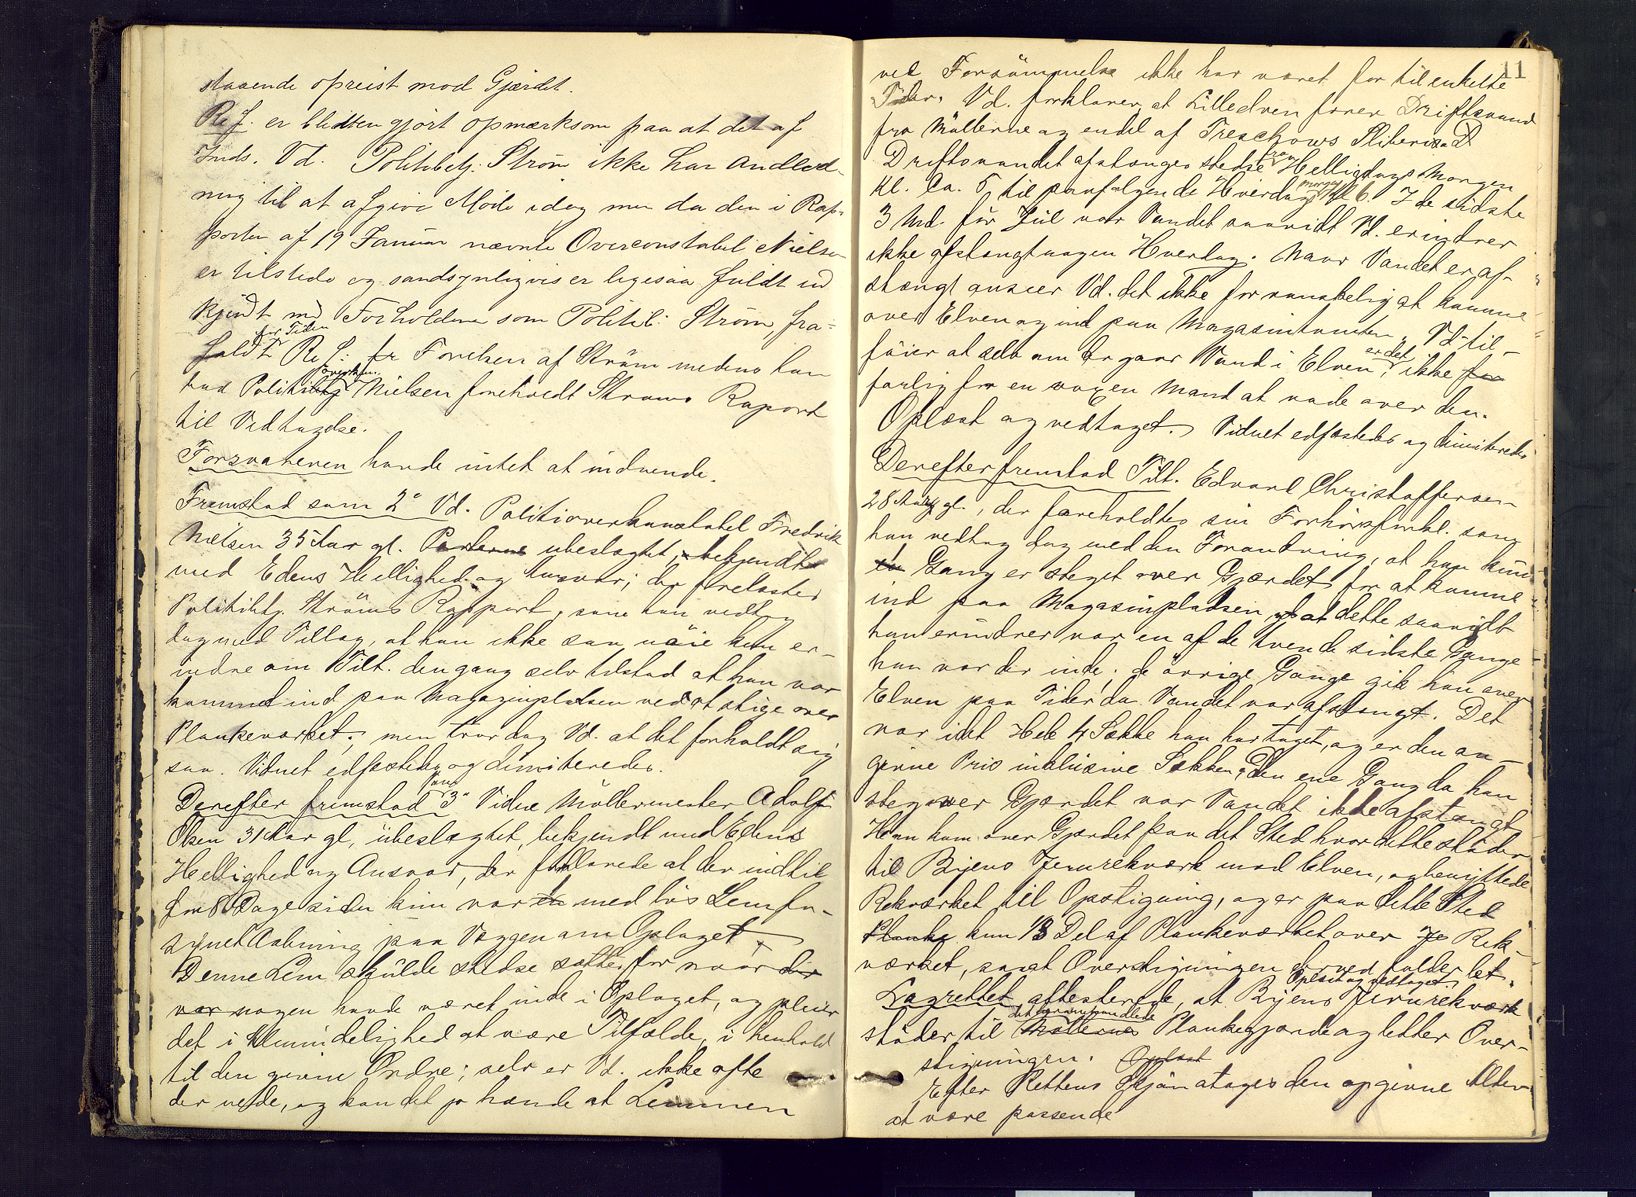 staaende opreist mod Gjærdet.
Ref. er blidten gjort opmærksom paa at det af
Inds. Vd. Politibtj. Strøm ikke har Andled-
ning til at afgive Møde idag men da den i Rap-
porten af 19 Januar nævnte Overconstabel Nielsen
er tilstede og sandsynligvis er ligesaa fuldt ud
kjendt med Forholdene som Politib. Strøm fra-
faldt Ref. for Tiden Førelsen af Strøm medens han
bad Politiovkn. Nielsen foreholdt Strøms Raport
til Vedtagelse.
Forsvareren havde intet at indvende.
Fremstod som 2° Vd. Politioverkonstabel Fredrik
Nielsen 35 Aar gl. Parterne ubeslægtet, bekjendt
med Edens Hellighed og Ansvar; der forelæstes
Politibtj. Strøms Rapport, som han vedtog
dog med Tillæg, at han ikke saa nøie kan er-
indre om Tilt. dengang selv tilstod at han var
kommet ind paa Magazinpladsen ved at stige over
Plankeværket, men tror dog Vd. at det forholdt sig
saa. Vidnet edfæstedes og dimiteredes.
Derefter fremstod som 3° Vidne Møllermester Adolf
Olsen 31 Aar gl, ubeslægtet, bekjendt med Edens
Hellighed og Ansvar, der forklarede at der indtil
for 8 Dage siden kun var med løs Lem for-
synet Aabning paa Væggen om Oplaget.
Denne Lem skulde stedse sættes for naar der
var nogen havde været inde i Oplaget, og pleier
det i Almindelighed at være Tilfælde, i Henhold
til den givne Ordre; selv er Vd. ikke ofte
der nede, og kan det jo hænde at Lemmen
11
ved Forsømmelse ikke har været for til enkelte
Tider. Vd. forklarer, at Lilleelven fører Driftsvand
fra Møllerne og endel af Treschows Sliberi.
Driftsvandet afstænges stedse fra Helligdags Morgen
Kl. Ca. 7, til paafølgende Hverdag morgen Kl. 6. I de sidste
3 Md. før Jul var Vandet saavidt Vd. erindrer
ikke afstængt nogen Hverdag. Naar Vandet er af-
stængt anseer Vd. det ikke for vanskelig at komme
over Elven og ind paa Magasintomten. Vd. til-
føier at selv om der gaar Vand i Elven, er det ikke
farlig for en voxen Mand at vade over den.
Oplæst og vedtaget. Vidnet edfæstedes og dimiteredes
Derefter fremstod Tilt. Edvard Christoffersen
28 Aar gl., der foreholdtes sin Forhørsforkl. som
han vedtog dog med den Forandring, at han kun
en Gang er steget over Gjærdet for at komme
ind paa Magasinpladsen, at dette saavidt
han erindrer var en af de tvende sidste Gange
han var der inde; de øvrige Gange gik han over
Elven paa Tider da Vandet var afstængt. Det
var idet Hele 4 Sække han har taget, og er den an-
givne Pris inklusive Sækken, den ene Gang da han
steg over Gjærdet var Vandet ikke afstængt
Han kom over Gjærdet paa det Sted hvor dette støder
til Byens Jernrekværk mod Elven, og benyttede
Rekværket til Opstigning, og er paa dette Sted
Planke kun 1/3 Del af Plankeværket over Rek-
værket, saa at Overstigningen er ved falder let.
Oplæst og vedtaget.
Lagrettet attesterede, at Byens Jernrekværk
støder til det omhandlede Plankegjærde og letter Over-
stigningen. Oplæst
Efter Rettens Skjøn atages den opgivne Alder
at være passende